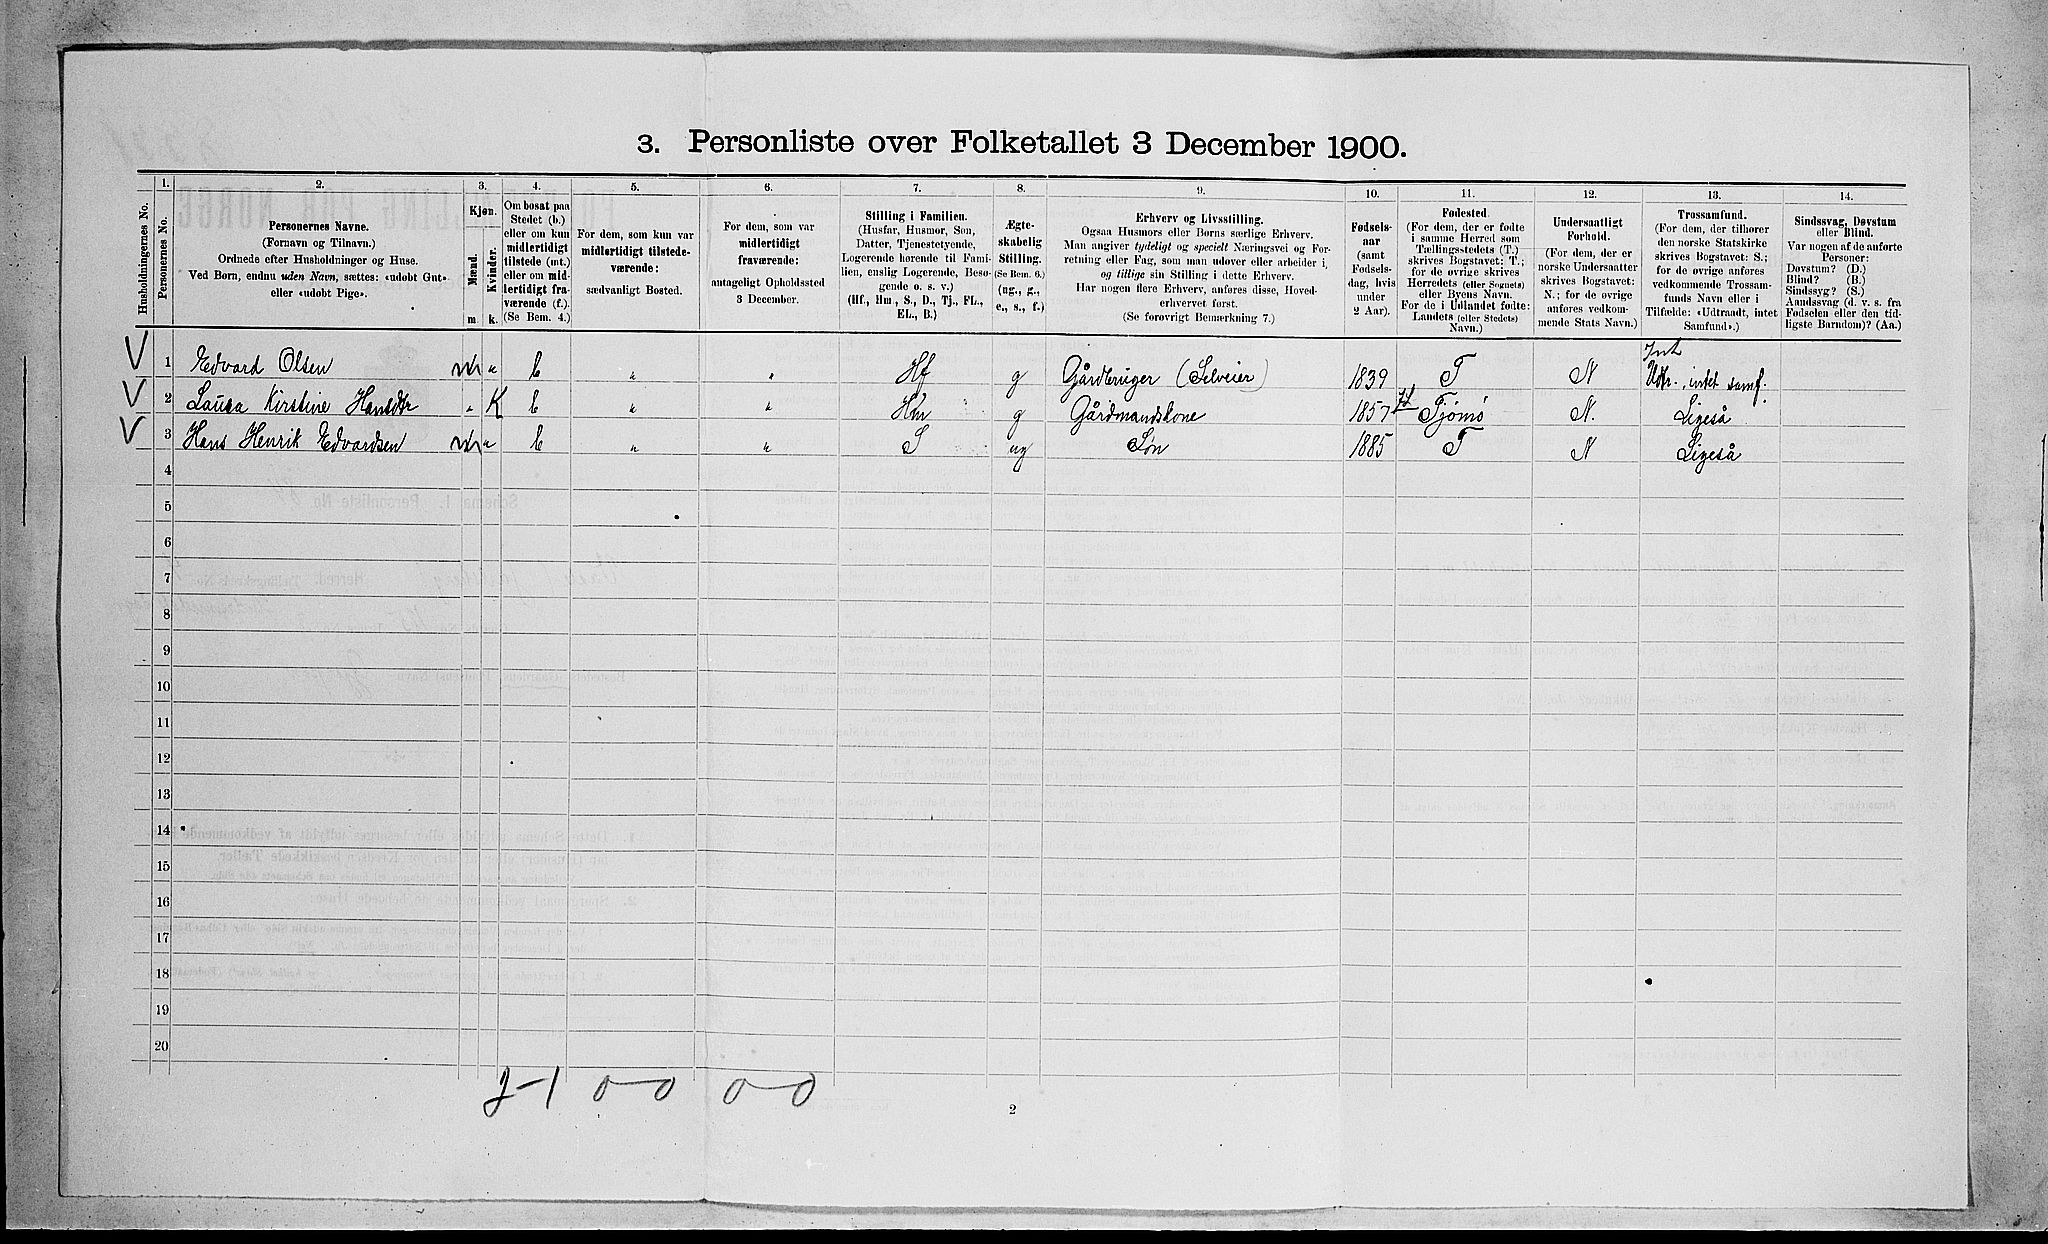 3. Personliste over Folketallet 3 December 1900.
Husholdningernes No.
1.
Personernes No.
2.
Personernes Navne.
(Fornavn og Tilnavn.)
Ordnede efter Husholdninger og Huse.
Ved Børn, endnu uden Navn, sættes: «udøbt Gut»
eller «udøbt Pige».
3.
Kjøn.
Mænd.
Kvinder.
m.
k.
4.
Om bosat paa
Stedet (b.)
eller om kun
midlertidigt
tilstede (mt.)
eller om mid-
lertidigt fra-
værende (f.).
(Se Bem. 4.)
5.
For dem, som kun var
midlertidigt tilstede-
værende:
sædvanligt Bosted.
6.
For dem, som var
midlertidigt
fraværende:
antageligt Opholdssted
3 December.
7.
Stilling i Familien.
(Husfar, Husmor, Søn,
Datter, Tjenestetyende,
Logerende hørende til Fami-
lien, enslig Logerende, Besø-
gende o. s. v.)
(Hf., Hm., S., D., Tj., FL.,
EL., B.)
8.
Ægte-
skabelig
Stilling.
(Se Bem. 6.)
(ug., g.,
e., s., f.)
9.
Erhverv og Livsstilling.
Ogsaa Husmors eller Børns særlige Erhverv.
Man angiver tydeligt og specielt Næringsvei og For-
retning eller Fag, som man udøver eller arbeider i,
og tillige sin Stilling i dette Erhverv.
Har nogen flere Erhverv, anføres disse, Hoved-
erhvervet først.
(Se forøvrigt Bemærkning 7.)
10.
Fødsels-
aar
(samt
Fødsels-
dag, hvis
under
2 Aar).
11.
Fødested.
(For dem, der er fødte
i samme Herred som
Tællingsstedets (T.)
skrives Bogstavet: T.;
for de øvrige skrives
Herredets (eller Sognets)
eller Byens Navn.
For de i Udlandet fødte:
Landets (eller Stedets)
Navn.)
12.
Undersaatligt
Forhold.
(For dem, der er
norske Undersaatter
skrives Bogstavet:
N.; for de øvrige
anføres vedkom-
mende Stats Navn.)
13.
Trossamfund.
(For dem, der tilhører
den norske Statskirke
skrives Bogstavet: S.;
for de øvrige anføres
vedkommende Trossam-
funds Navn eller i
Tilfælde: «Udtraadt, intet
Samfund».)
14.
Sindssvag, Døvstum
eller Blind.
Var nogen af de anførte
Personer:
Døvstum? (D.)
Blind? (B.)
Sindssyg? (S.)
Aandssvag (d. v. s. fra
Fødselen eller den tid-
ligste Barndom)? (Aa.)
Int
V 1 Edvard Olsen m " b " " Hf g Gårdbruger (Selveier) 1839 T N Udtr. intet samf.
V 2 Laura Kirstine Hansdtr " K b " " Hm g Gårdmandskone 1857 Tjømø N. Ligeså
V 3 Hans Henrik Edvardsen m " b " " S ug Søn 1885 T N Ligeså
4
5
6
7
8
9
10
11
12
13
14
15
16
17
18
19
20
2-1 0-0 0-0
2